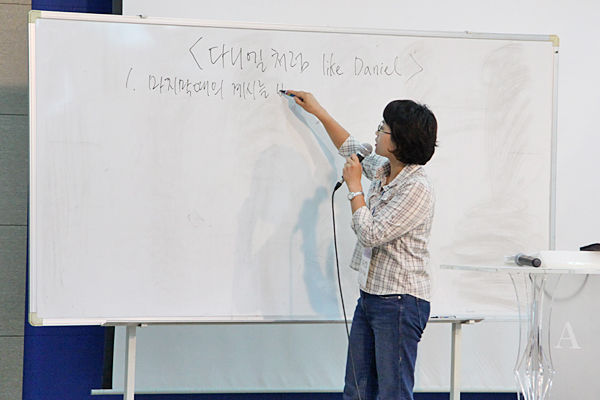 <다니엘처럼 like Daniel>
1. 마지막때의 계시를
A